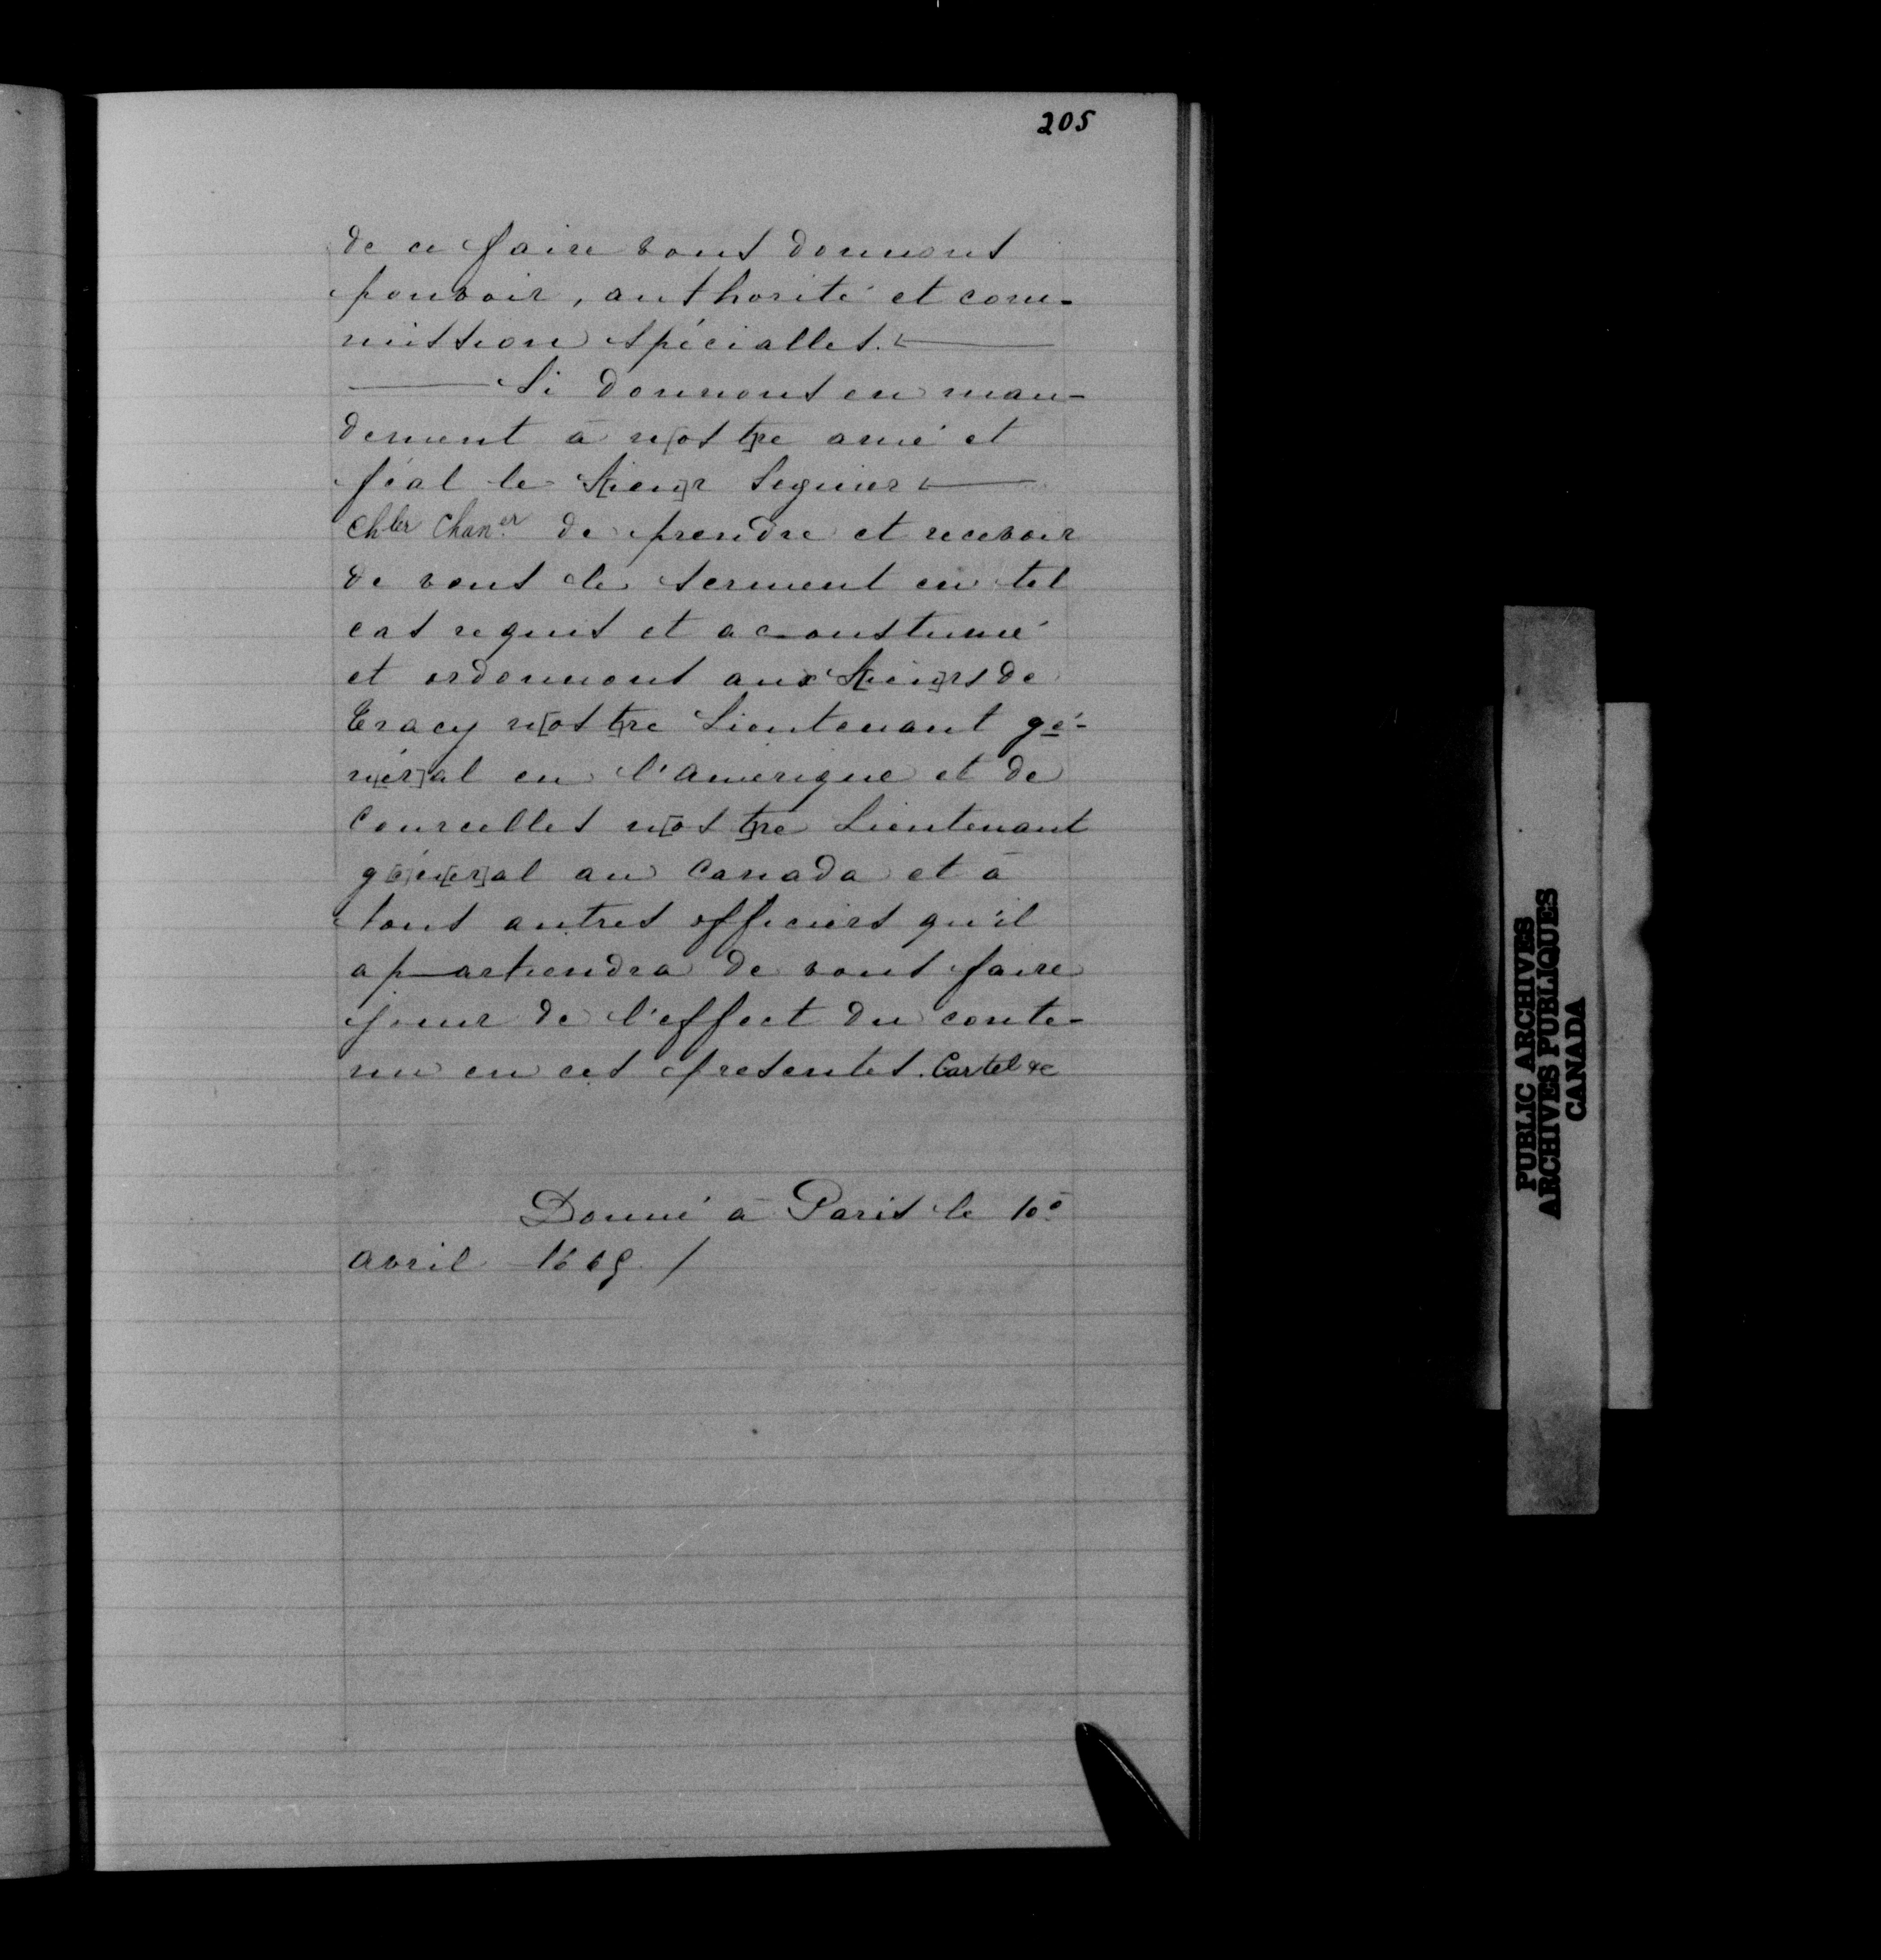 205
de ce faire vous donnons
pouvoir, authorité et com-
mission spécialles.
Si donnons en man-
dement à n[os]tre amé et
féal le S[ieu]r Seguier
Ch^ler Chan^er de prendre et recevoir
de vous le serment en tel
cas requis et acoustumé
et ordonnons aux S[ieu]rs de
Tracy n[os]tre Lieutenant gé-
n[ér]al en l'amérique et de
Courcelles n[os]tre Lieutenant
g[é]n[ér]al au Canada et à
tous autres officiers qu'il
apartiendra de vous faire
jouir de l'effect du conte-
nu en ces presentes. Car tel &c
Donné à Paris le 10e
avril 1665 /
PUBLIC ARCHIVES
ARCHIVES PUBLIQUES
CANADA